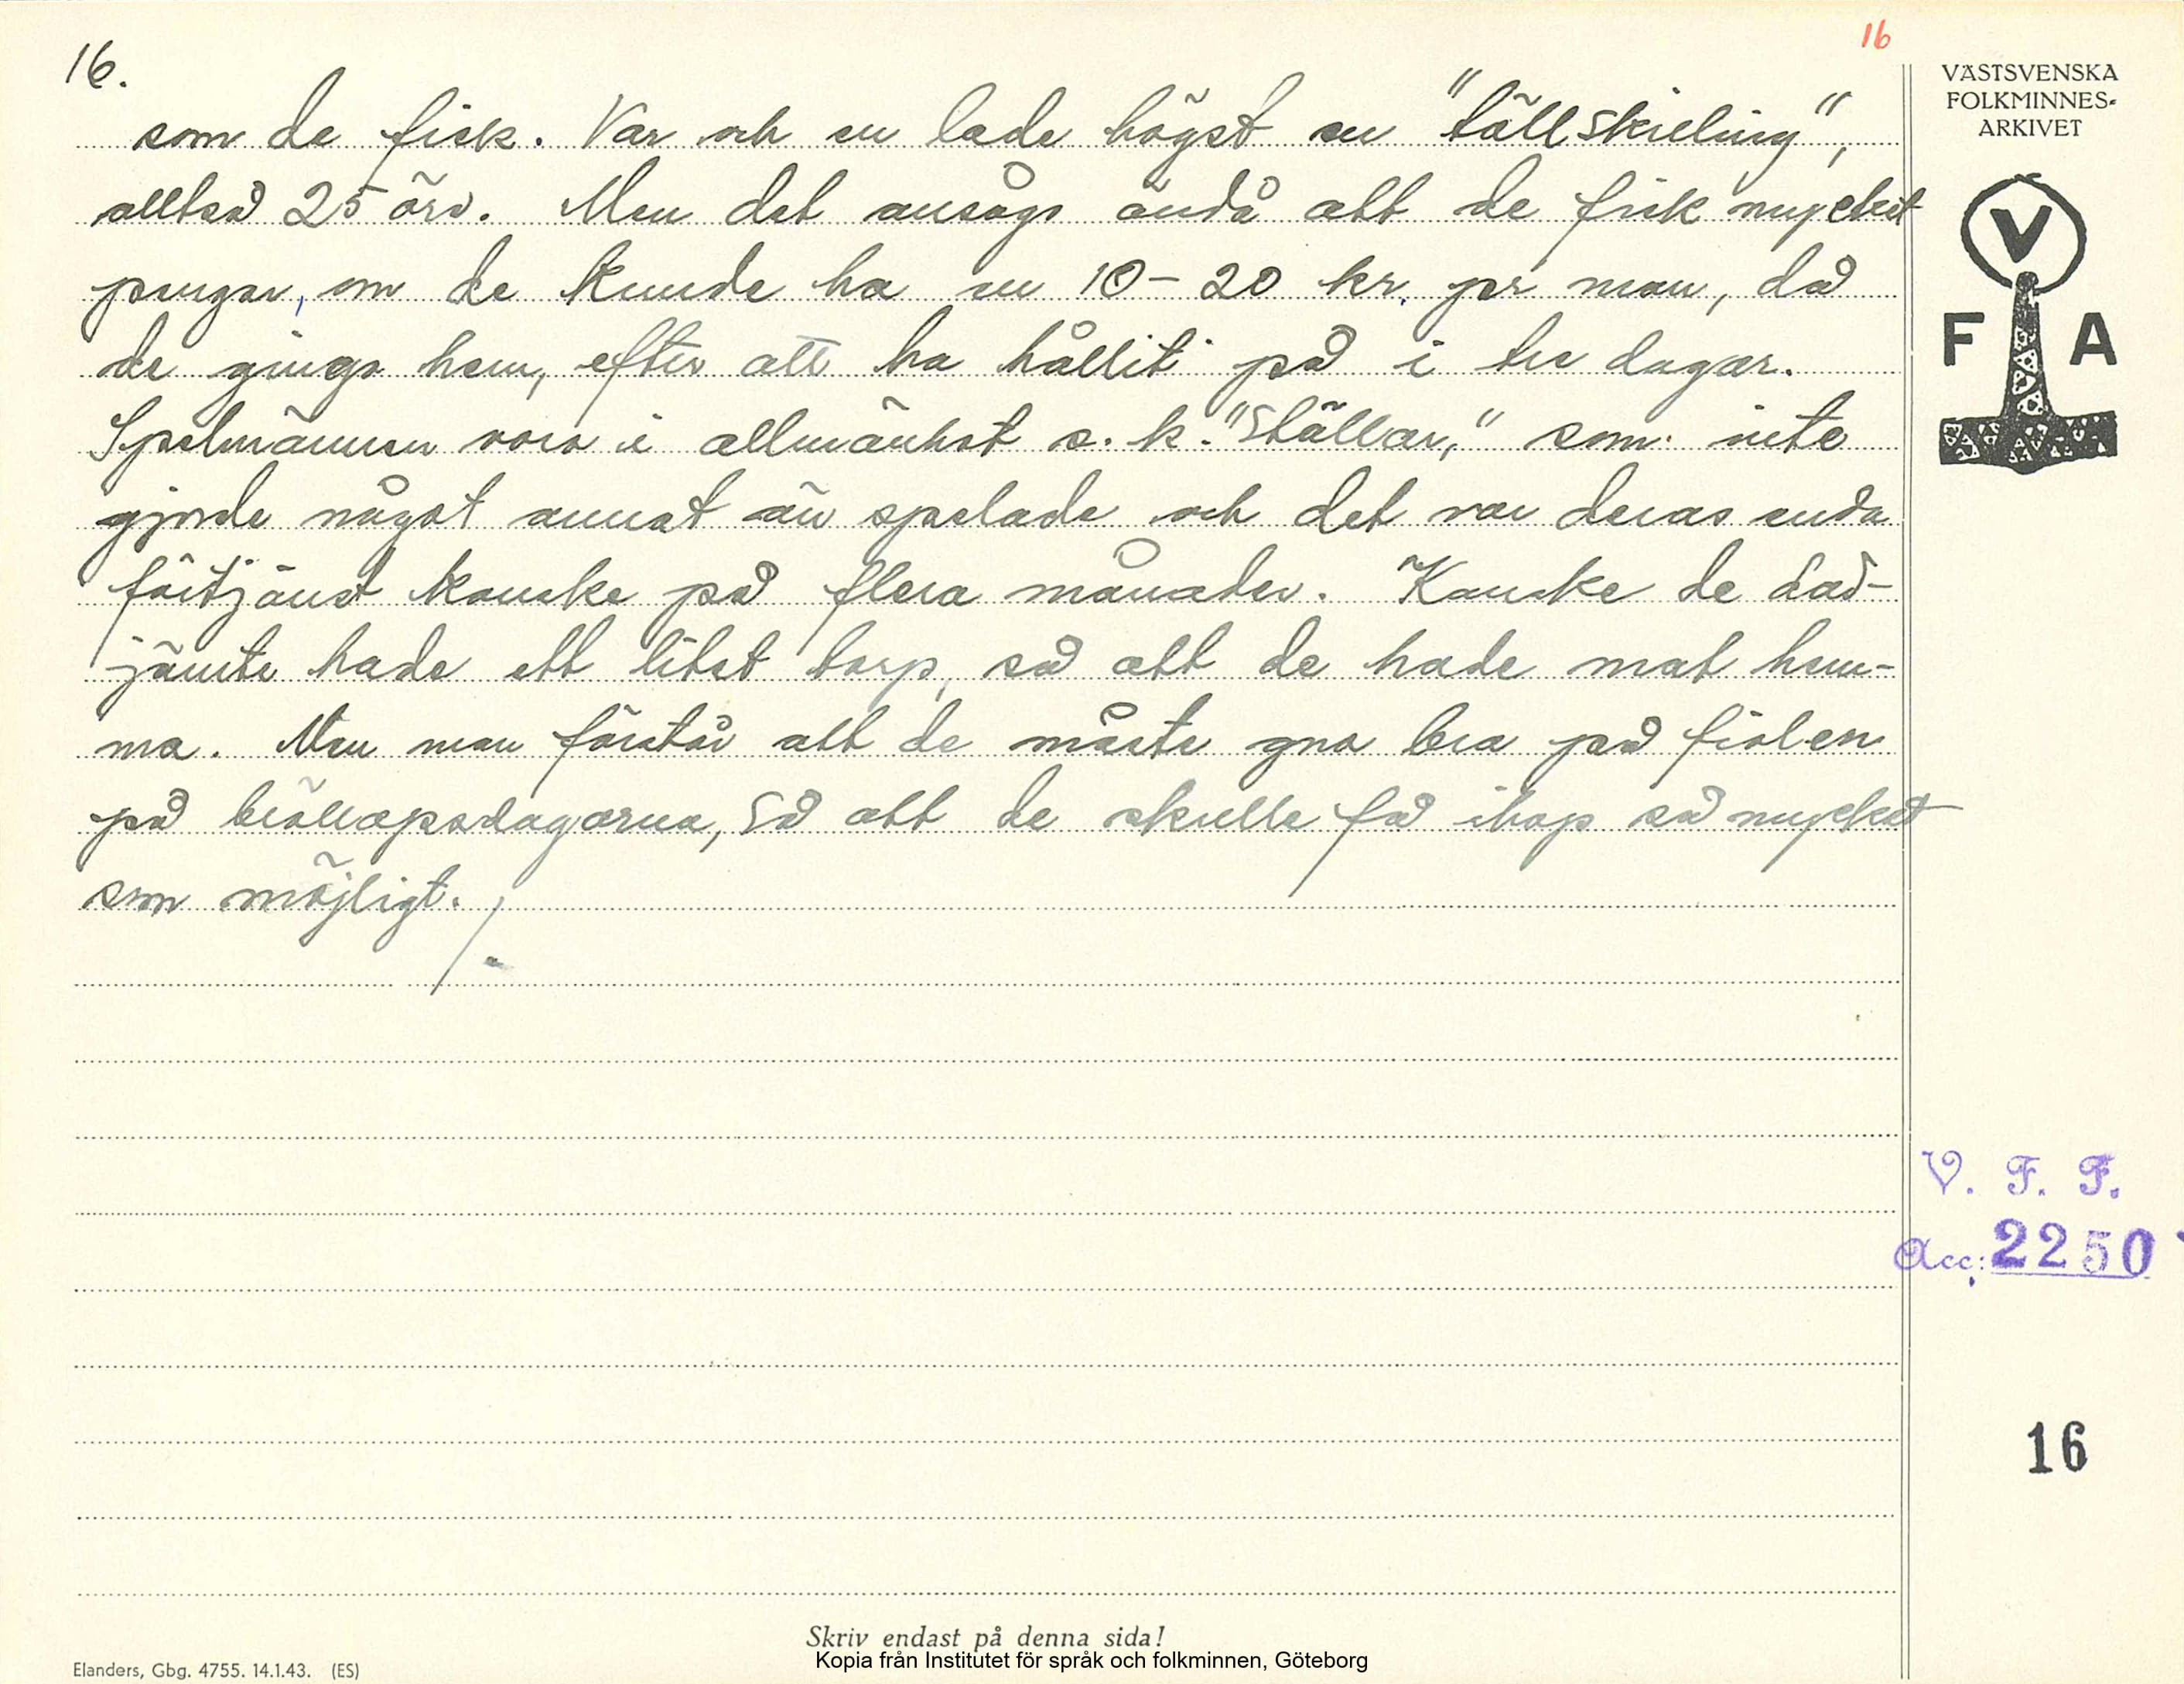 16.
16
VÄSTSVENSKA
FOLKMINNES-
ARKIVET
V
F A
som de fick. Var och en lade högst en "tållskieling",
alltså 25 öre. Men det ansågs ändå att de fick mycket
pengar, om de kunde ha en 10-20 kr. per man, då
de gingo hem, efter att ha hållit på i tre dagar.
Spelmännen voro i allmänhet s. k. "Ställar," som inte
gjorde något annat än spelade och det var deras enda
förtjänst kanske på flera månader. Kanske de där-
jämte hade ett litet torp, så att de hade mat hem-
ma. Men man förstår att de måste gno bra på fiolen
på bröllopsdagarna, så att de skulle få ihop så mycket
som möjligt. /.
V. F. F.
Acc: 2250
16
Skriv endast på denna sida!
Kopia från Institutet för språk och folkminnen, Göteborg
Elanders, Gbg. 4755. 14.1.43. (ES)